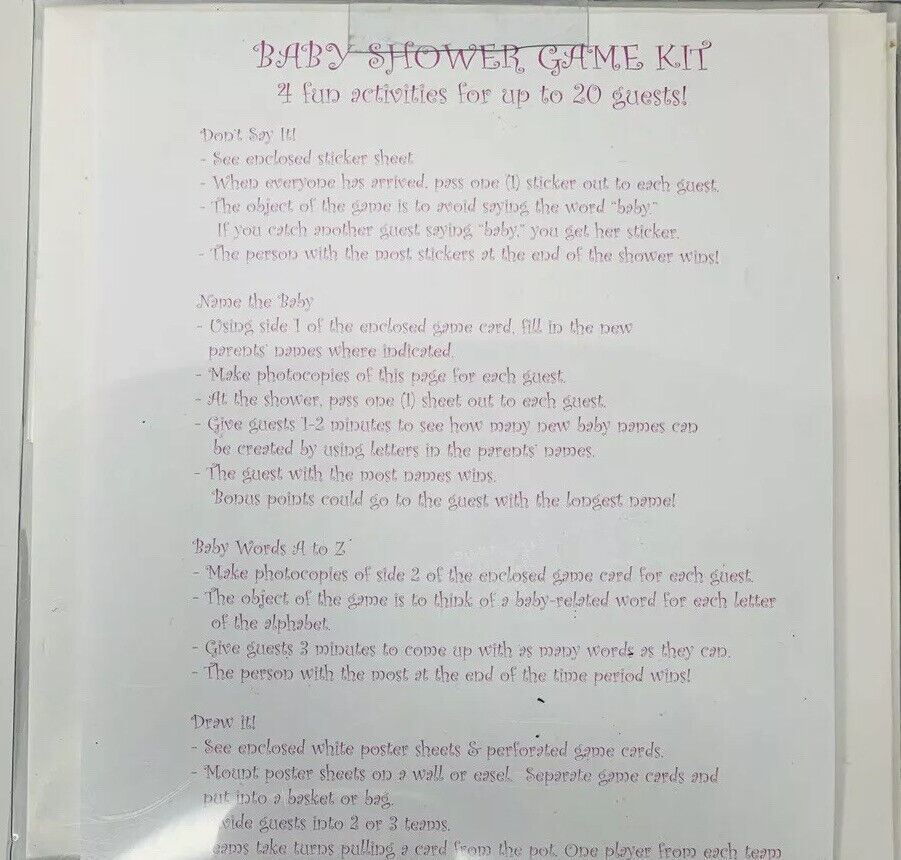 BABY SHOWER GAME KIT
4 fun activities for up to 20 guests!
Don't Say It!
- See enclosed sticker sheet
- When everyone has arrived, pass one (1) sticker out to each guest.
- The object of the game is to avoid saying the word "baby."
If you catch another guest saying "baby," you get her sticker.
- The person with the most stickers at the end of the shower wins!
Name the Baby
- Using side 1 of the enclosed game card, fill in the new
parents' names where indicated.
- Make photocopies of this page for each guest.
- At the shower, pass one (1) sheet out to each guest.
- Give guests 1-2 minutes to see how many new baby names can
be created by using letters in the parents' names.
- The guest with the most names wins.
Bonus points could go to the guest with the longest name!
Baby Words A to Z
- Make photocopies of side 2 of the enclosed game card for each guest.
- The object of the game is to think of a baby-related word for each letter
of the alphabet.
- Give guests 3 minutes to come up with as many words as they can.
- The person with the most at the end of the time period wins!
Draw it!
- See enclosed white poster sheets & perforated game cards.
- Mount poster sheets on a wall or easel. Separate game cards and
put into a basket or bag.
guests into 2 or 3 teams.
take turns pulling a card from the pot. One player from each team